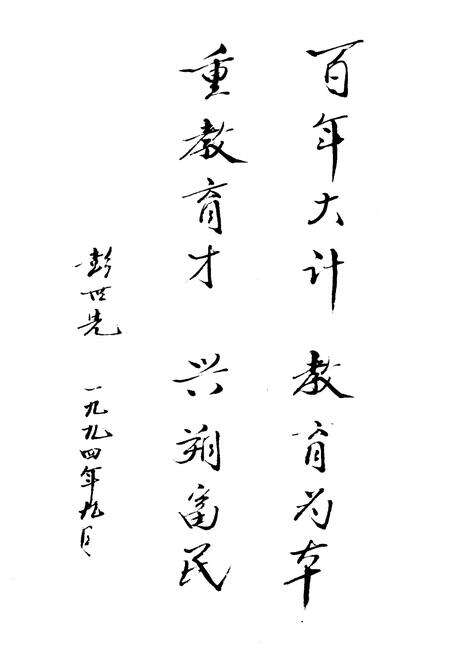 百年大计 教育为本
重教育才 兴朔富民
彭世先 一九九四年九月